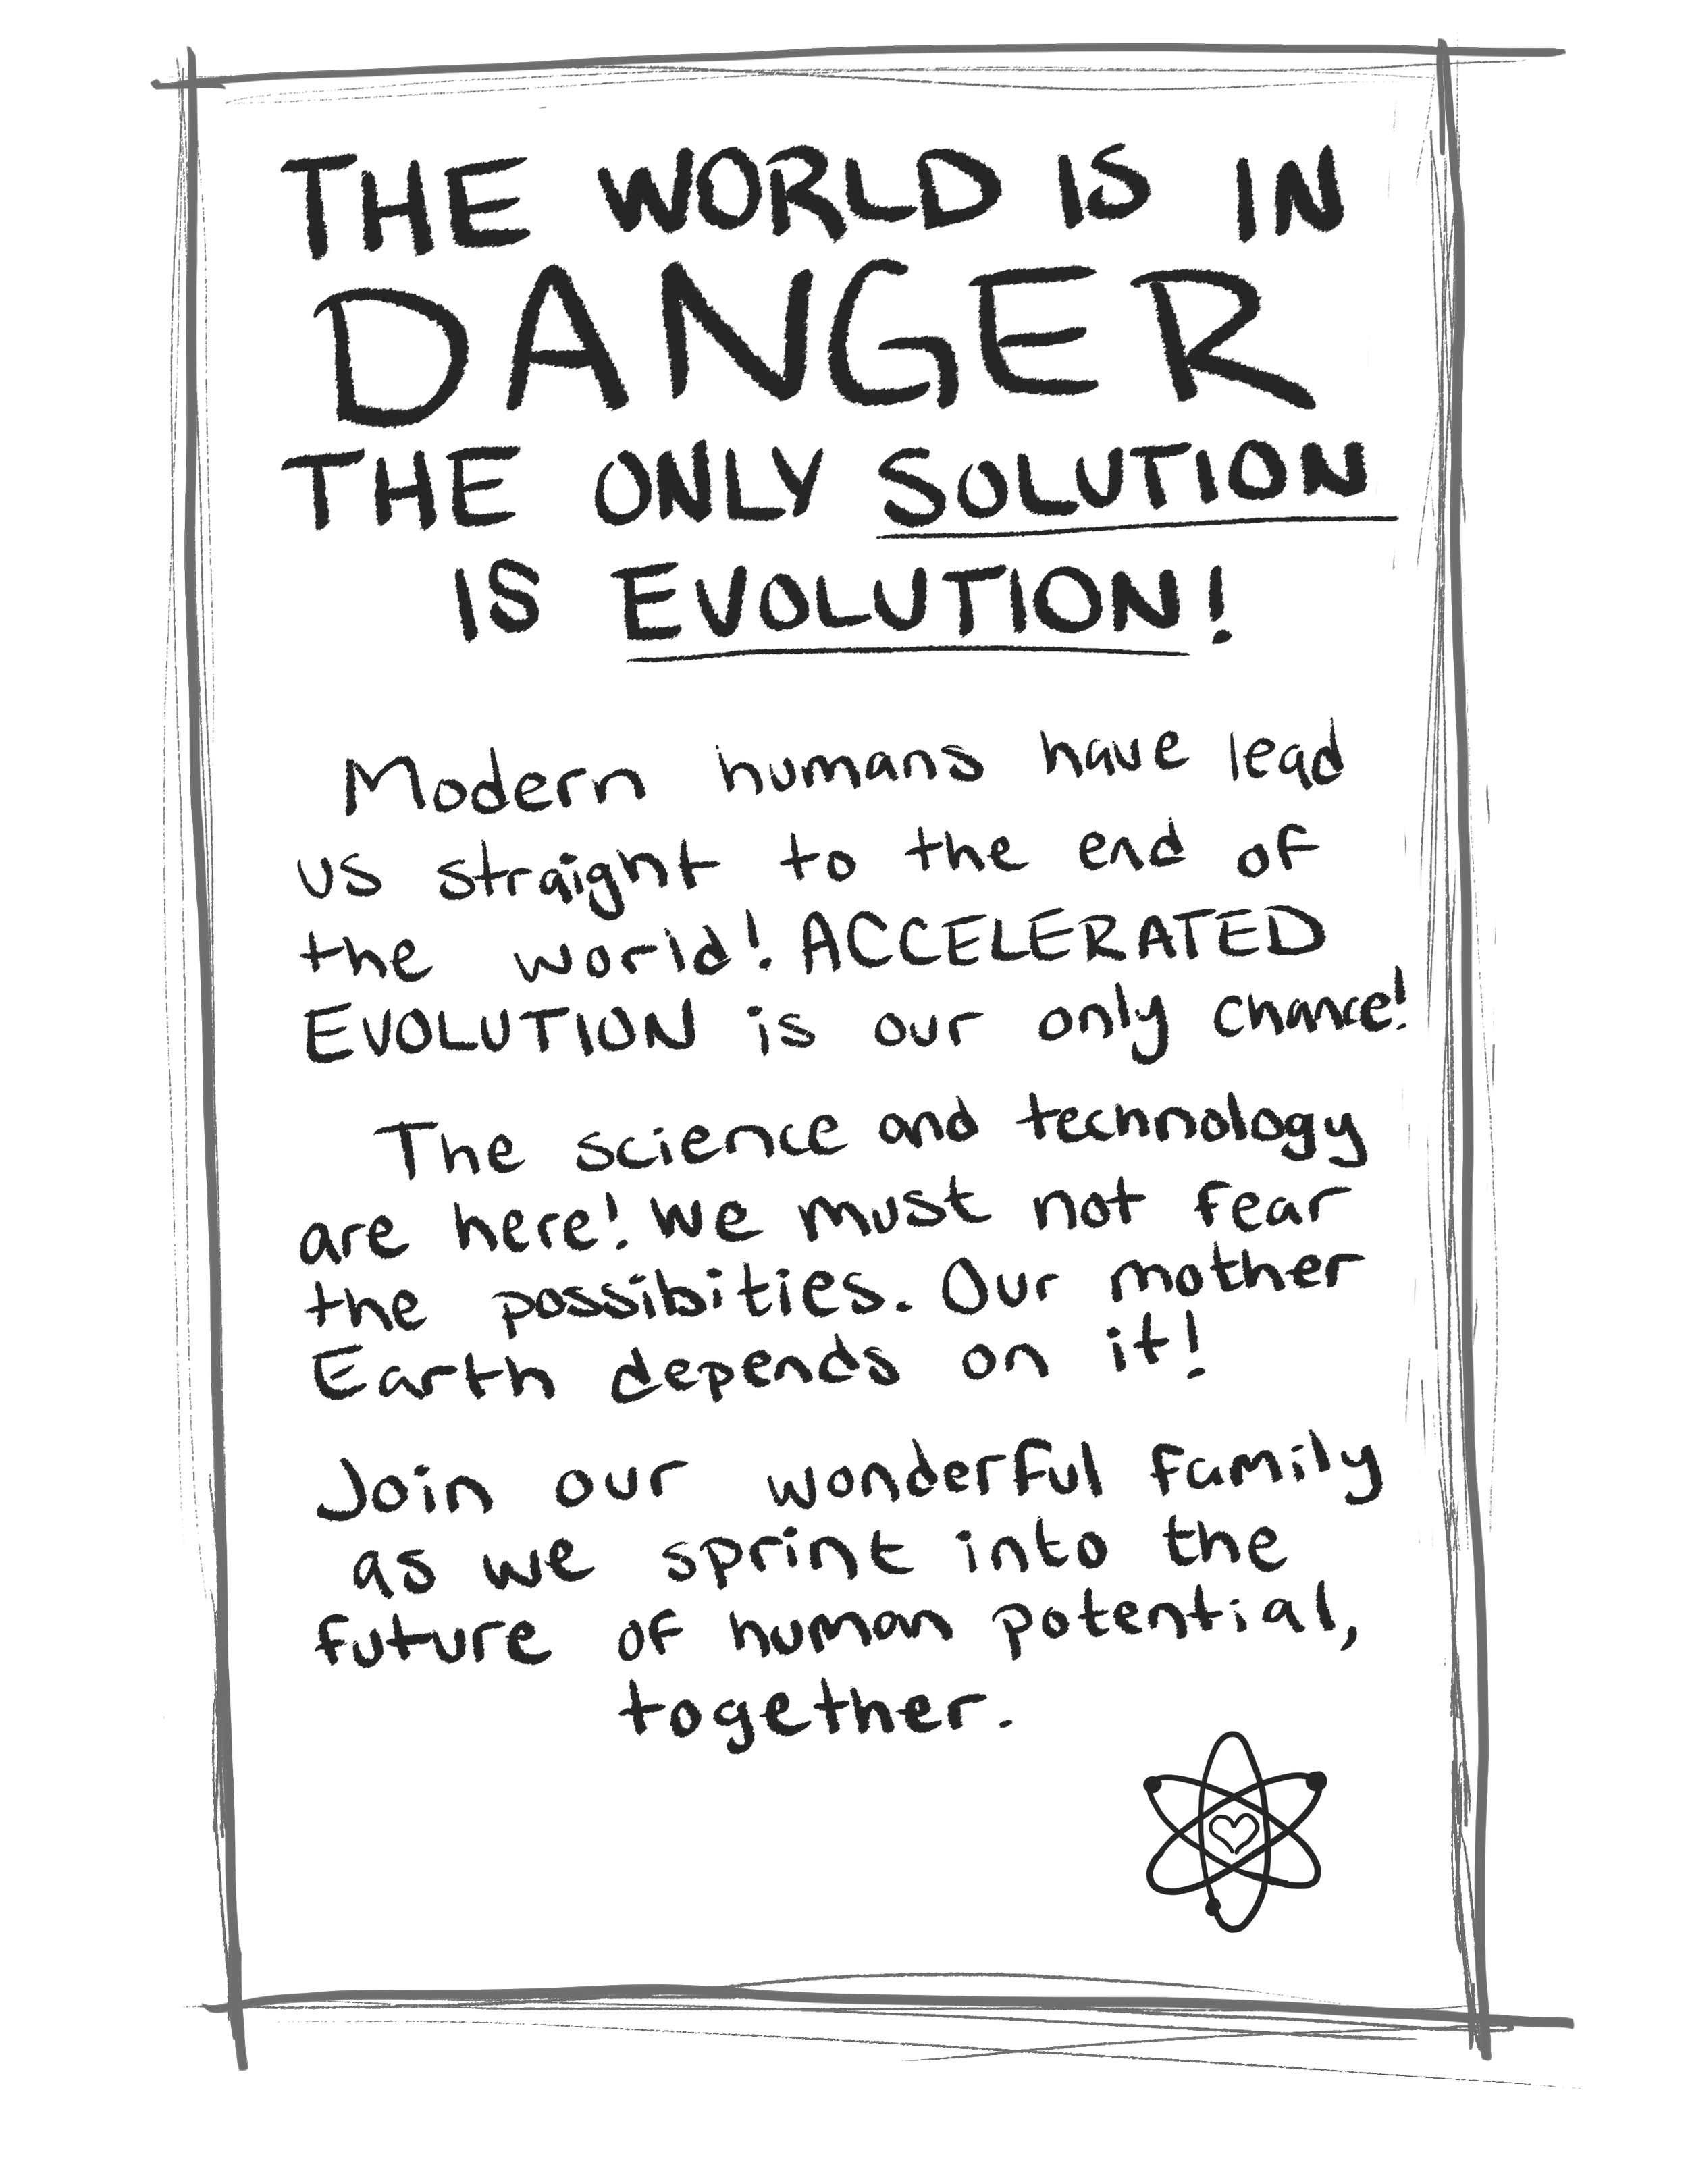 THE WORLD IS IN
DANGER
THE ONLY SOLUTION
IS EVOLUTION!
Modern humans have lead
us straight to the end of
the world! ACCELERATED
EVOLUTION is our only chance!
The science and technology
are here! We must not fear
the possibities. Our mother
Earth depends on it!
Join our wonderful family
as we sprint into the
future of human potential,
together.